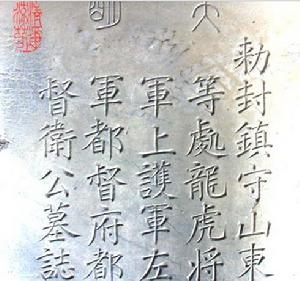 大明
勅封鎮守山東
等處龍虎将
軍上護軍左
軍都督府都
督衛公墓誌